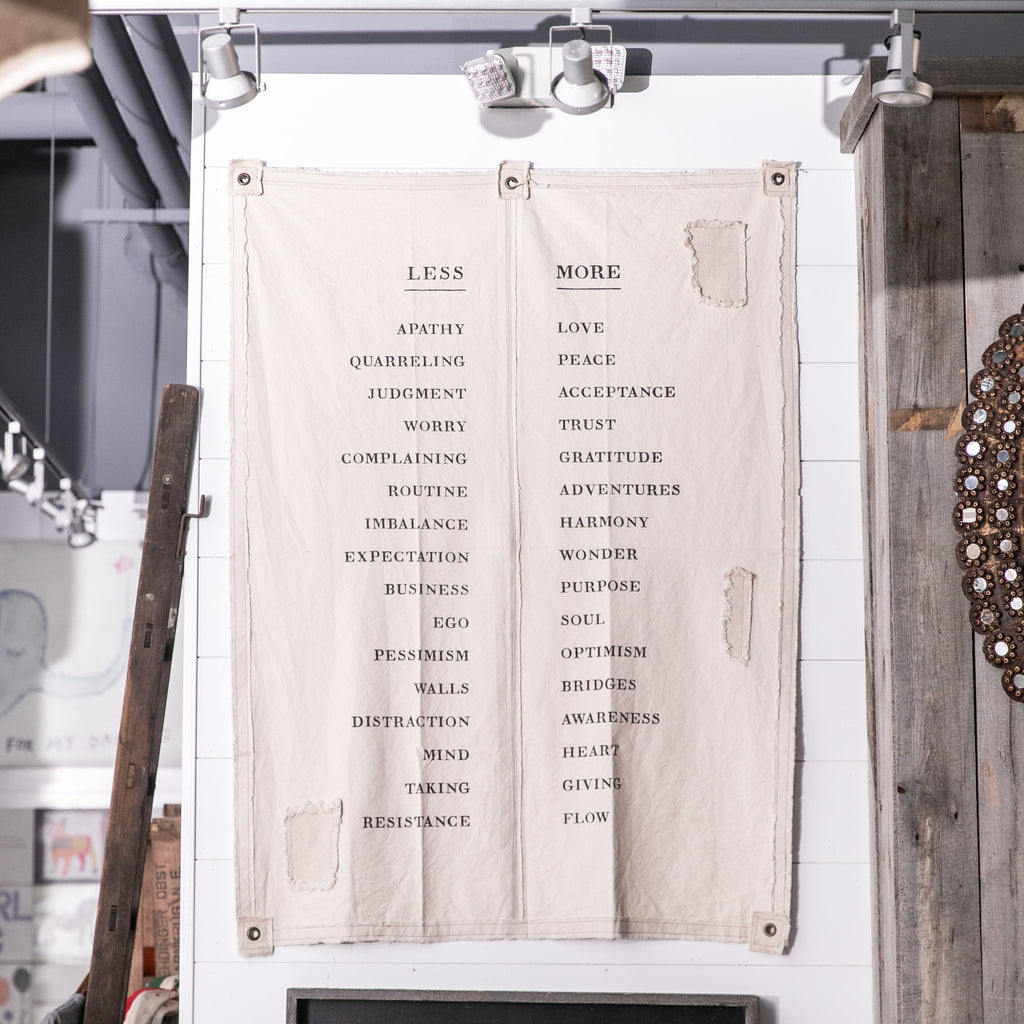 LESS MORE
APATHY LOVE
QUARRELING PEACE
JUDGMENT ACCEPTANCE
WORRY TRUST
COMPLAINING GRATITUDE
ROUTINE ADVENTURES
IMBALANCE HARMONY
EXPECTATION WONDER
BUSINESS PURPOSE
EGO SOUL
PESSIMISM OPTIMISM
WALLS BRIDGES
DISTRACTION AWARENESS
MIND HEART
TAKING GIVING
RESISTANCE FLOW
FOR MY